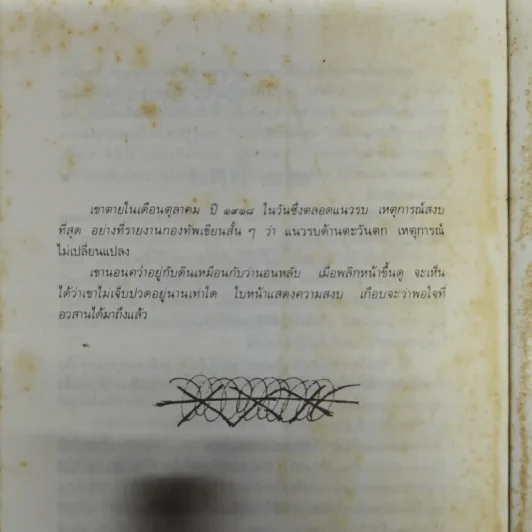 เขาตายในเดือนตุลาคม ปี ๑๙๑๘ ในวันซึ่งตลอดแนวรบ เหตุการณ์สงบ
ที่สุด อย่างที่รายงานกองทัพเขียนสั้น ๆ ว่า แนวรบด้านตะวันตก เหตุการณ์
ไม่เปลี่ยนแปลง
เขานอนคว่ำอยู่กับดินเหมือนกับว่านอนหลับ เมื่อพลิกหน้าขึ้นดู จะเห็น
ได้ว่าเขาไม่เจ็บปวดอยู่นานเท่าใด ใบหน้าแสดงความสงบ เกือบจะว่าพอใจที่
อวสานได้มาถึงแล้ว